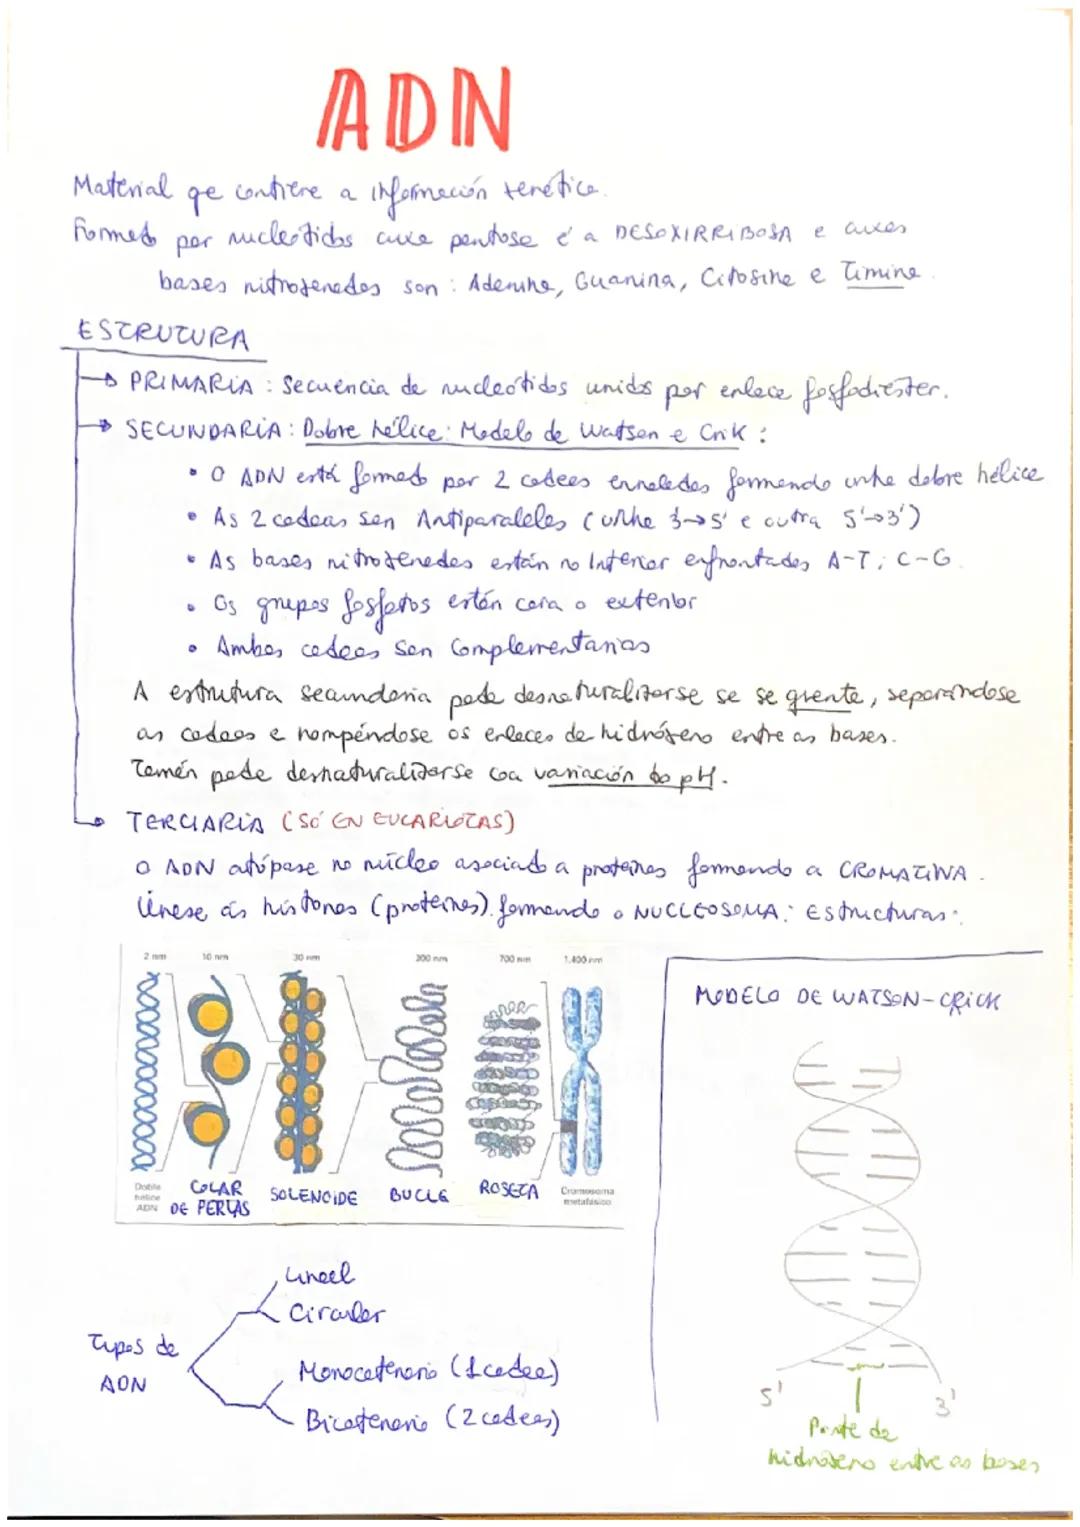 ADN
Material qe contiene a información xenética.
Formado por nucleótidos cuxa pentosa é a DESOXIRRIBOSA e cuxas
bases nitroxenadas son : Adenina, Guanina, Citosina e Timina.
ESTRUTURA
→ PRIMARIA : Secuencia de nucleótidos unidos por enlace fosfodiéster.
→ SECUNDARIA : Dobre hélice: Modelo de Watson e Crik :
• O ADN está formado por 2 cadeas enroladas formando unha dobre hélice
• As 2 cadeas son Antiparalelas (unha 3→5' e outra 5'→3')
• As bases nitroxenadas están no Interior enfrontadas A-T; C-G.
• Os grupos fosfatos están cara o exterior
• Ambas cadeas son Complementarias
A estrutura secundaria pode desnaturalizarse se se qenta, separándose
as cadeas e rompéndose os enlaces de hidróxeno entre as bases.
Tamén pode desnaturalizarse coa variación do pH.
→ TERCIARIA (SÓ EN EUCARIOTAS)
O ADN atópase no núcleo asociado a proteínas formando a CROMATINA.
Únese ás histonas (proteínas) formando o NUCLEOSOMA: Estructuras:
2 nm 10 nm 30 nm 300 nm 700 nm 1.400 nm
Doble hélice ADN
COLAR DE PERLAS
SOLENOIDE
BUCLE
ROSETA
Cromosoma metafásico
MODELO DE WATSON-CRICK
5'
3'
Ponte de
hidróxeno entre as bases
Tipos de
ADN
Lineal
Circular
Monocatenario (1 cadea)
Bicatenario (2 cadeas)